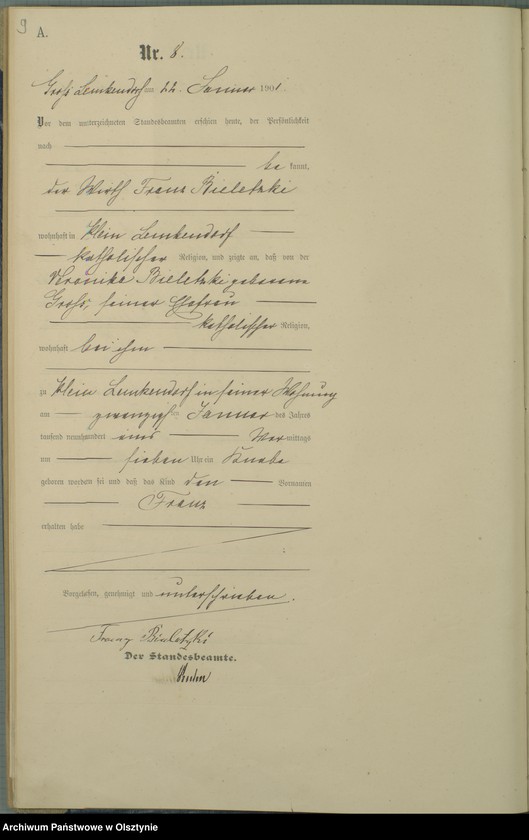 9
A.
Nr. 8.
Groß Lemkendorf am 22. Januar 1901.
Vor dem unterzeichneten Standesbeamten erschien heute, der Persönlichkeit
nach
be kannt,
der Wirth Franz Bieletzki
wohnhaft in Klein Lemkendorf
katholischer Religion, und zeigte an, daß von der
Veronika Bieletzki geborene
Groß, seiner Ehefrau
katholischer Religion,
wohnhaft bei ihm
zu Klein Lemkendorf in seiner Wohnung
am zwanzigsten Januar des Jahres
tausend neunhundert eins Vor mittags
um sieben Uhr ein Knabe
geboren worden sei und daß das Kind den Vornamen
Franz
erhalten habe
Vorgelesen, genehmigt und unterschrieben.
Franz Bieletzki
Der Standesbeamte.
Archiwum Państwowe w Olsztynie